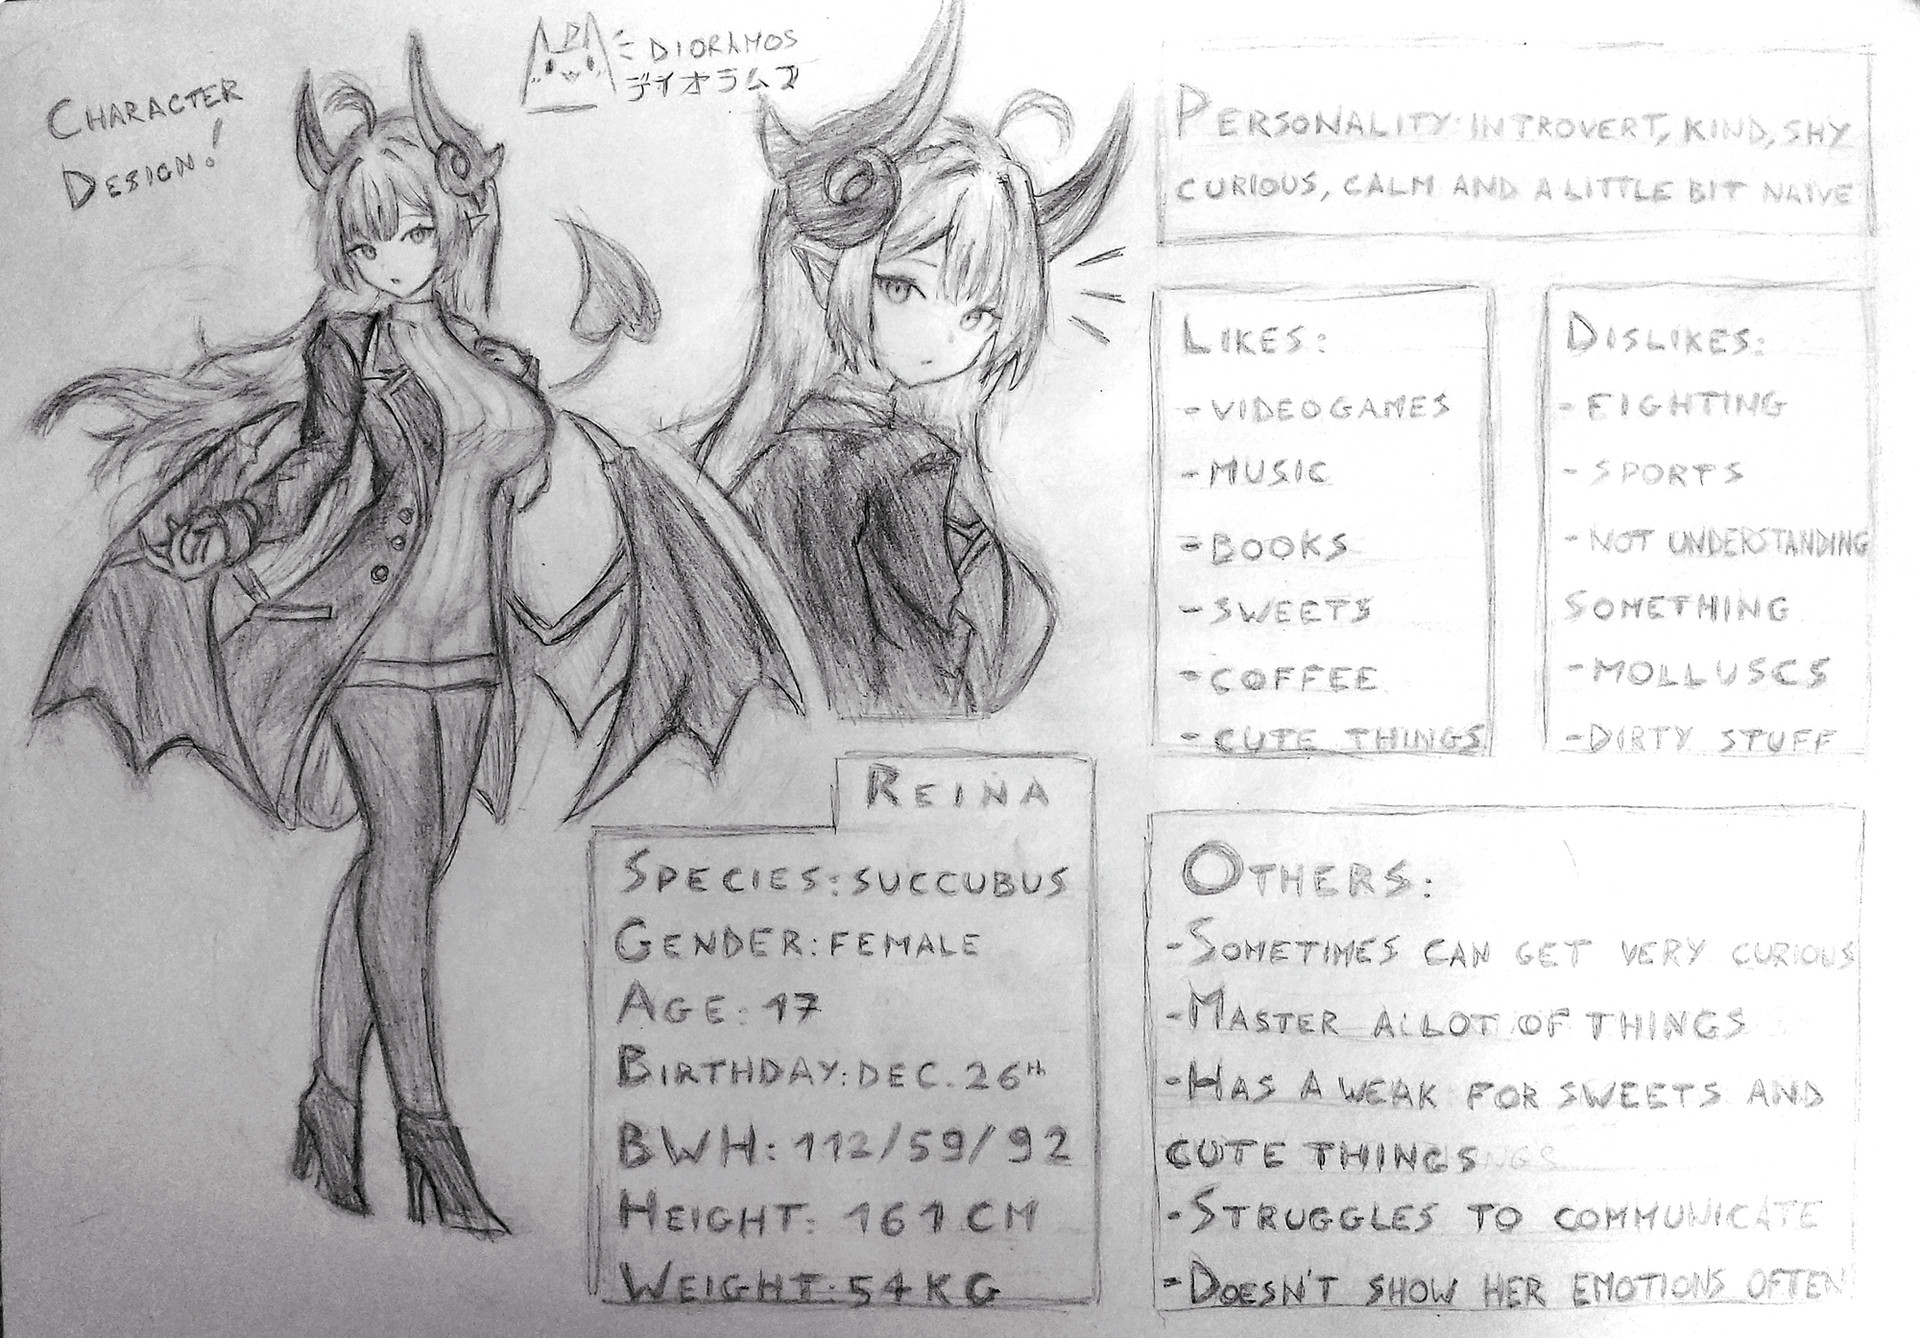 CHARACTER
DESIGN!
DIORAMOS
デイオラムズ
PERSONALITY: INTROVERT, KIND, SHY
CURIOUS, CALM AND A LITTLE BIT NAIVE
LIKES:
-VIDEOGAMES
-MUSIC
-BOOKS
-SWEETS
-COFFEE
-CUTE THINGS
DISLIKES:
-FIGHTING
-SPORTS
-NOT UNDERSTANDING
SOMETHING
-MOLLUSCS
-DIRTY STUFF
REINA
SPECIES: SUCCUBUS
GENDER: FEMALE
AGE: 17
BIRTHDAY: DEC. 26TH
BWH: 112/59/92
HEIGHT: 161 CM
WEIGHT: 54KG
OTHERS:
-SOMETIMES CAN GET VERY CURIOUS
-MASTER A LOT OF THINGS
-HAS A WEAK FOR SWEETS AND
CUTE THINGS
-STRUGGLES TO COMMUNICATE
-DOESN'T SHOW HER EMOTIONS OFTEN